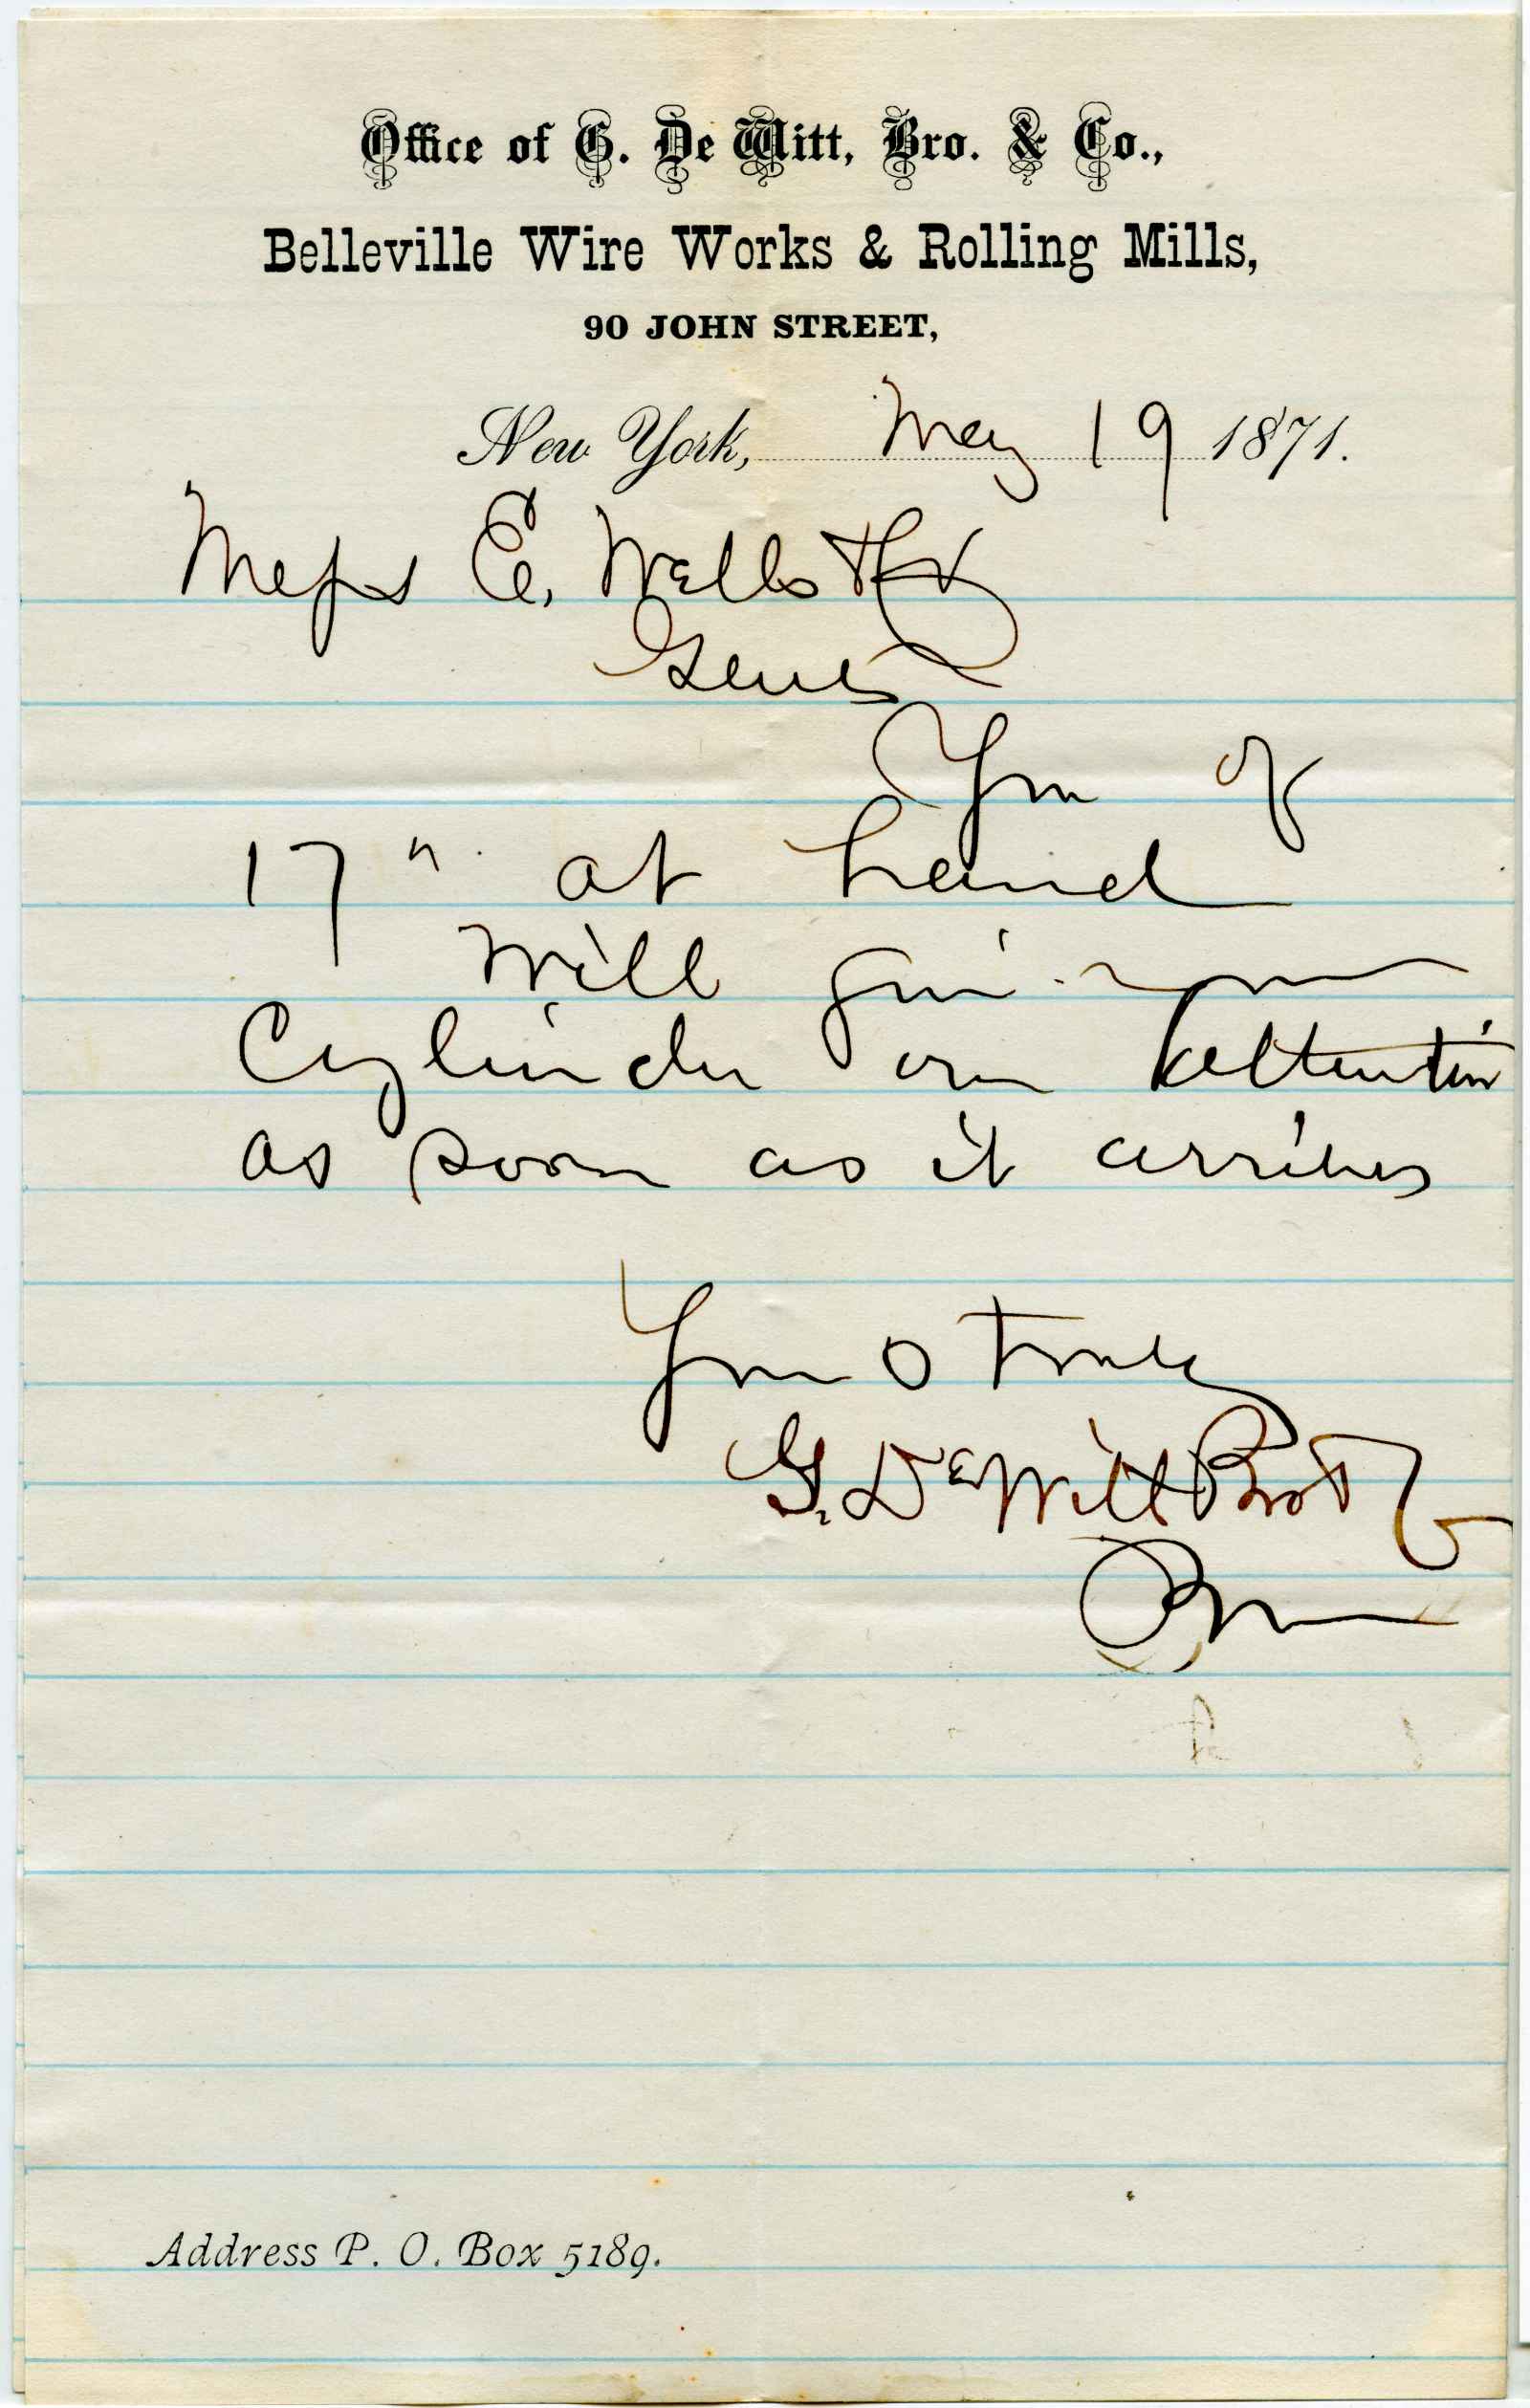 Office of G. De Witt, Bro. & Co.,
Belleville Wire Works & Rolling Mills,
90 JOHN STREET,
New York, May 19 1871.
Messrs E. Wells &
Gents
Your of
17" at hand
Will give your
Cylinder our attention
as soon as it arrives
Yours truly
G. De Witt Bro & Co
Address P. O. Box 5189.